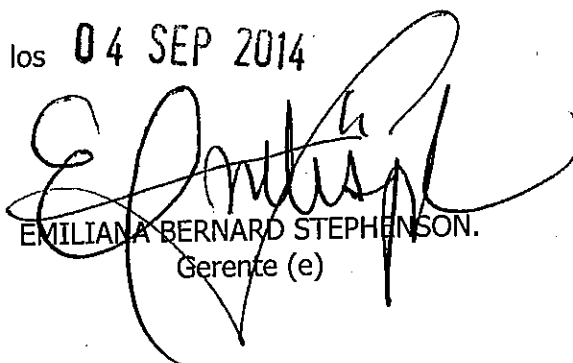 los 04 SEP 2014
EMILIANA BERNARD STEPHENSON.
Gerente (e)